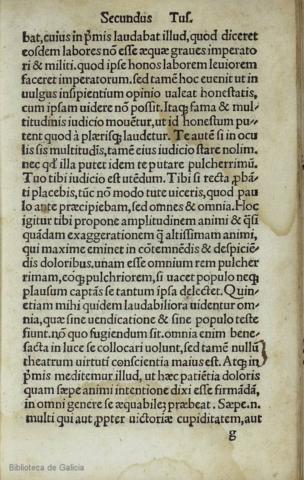 Secundus Tus.
bat, cuius in p̃mis laudabat illud, quod diceret
eosdem labores nõ esse æquæ graues imperato
ri & militi. quod ipse honos laborem leuiorem
faceret imperatorum. sed tamẽ hoc euenit ut in
uulgus insipientium opinio ualeat honestatis,
cum ipsam uidere nõ possit. Itaq; fama & mul
titudinis iudicio mouẽtur, ut id honestum pu-
tent quod à plærisq; laudetur. Te autẽ si in ocu
lis sis multitudĩs, tamẽ eius iudicio stare nolim.
nec qđ illa putet idem te putare pulcherrimũ.
Tuo tibi iudicio est utẽdum. Tibi si recta ꝓbã-
ti placebis, tũc nõ modo tute uiceris, quod pau
lo ante præcipiebam, sed omnes & omnia. Hoc
igitur tibi propone amplitudinem animi & q̃si
quãdam exaggerationem q̃ altissimam animi,
qui maxime eminet in cõtemnẽdis & despiciẽ-
dis doloribus. unam esse omnium rem pulcher
rimam, eoq; pulchriorem, si uacet populo neq;
plausum captãs se tantum ipsa delectet. Quin-
etiam mihi quidem laudabiliora uidentur om-
nia, quæ sine uendicatione & sine populo teste
fiunt. nõ quo fugiendum sit. omnia enim bene-
facta in luce se collocari uolunt, sed tamẽ nullũ
theatrum uirtuti conscientia maius est. Atq; in
p̃mis meditemur illud, ut hæc patiẽtia doloris
quam sæpe animi intentione dixi esse firmãdã,
in omni genere se æquabilez præbeat. Sæpe.n.
multi qui aut ꝓpter uictoriæ cupiditatem, aut
g
Biblioteca de Galicia